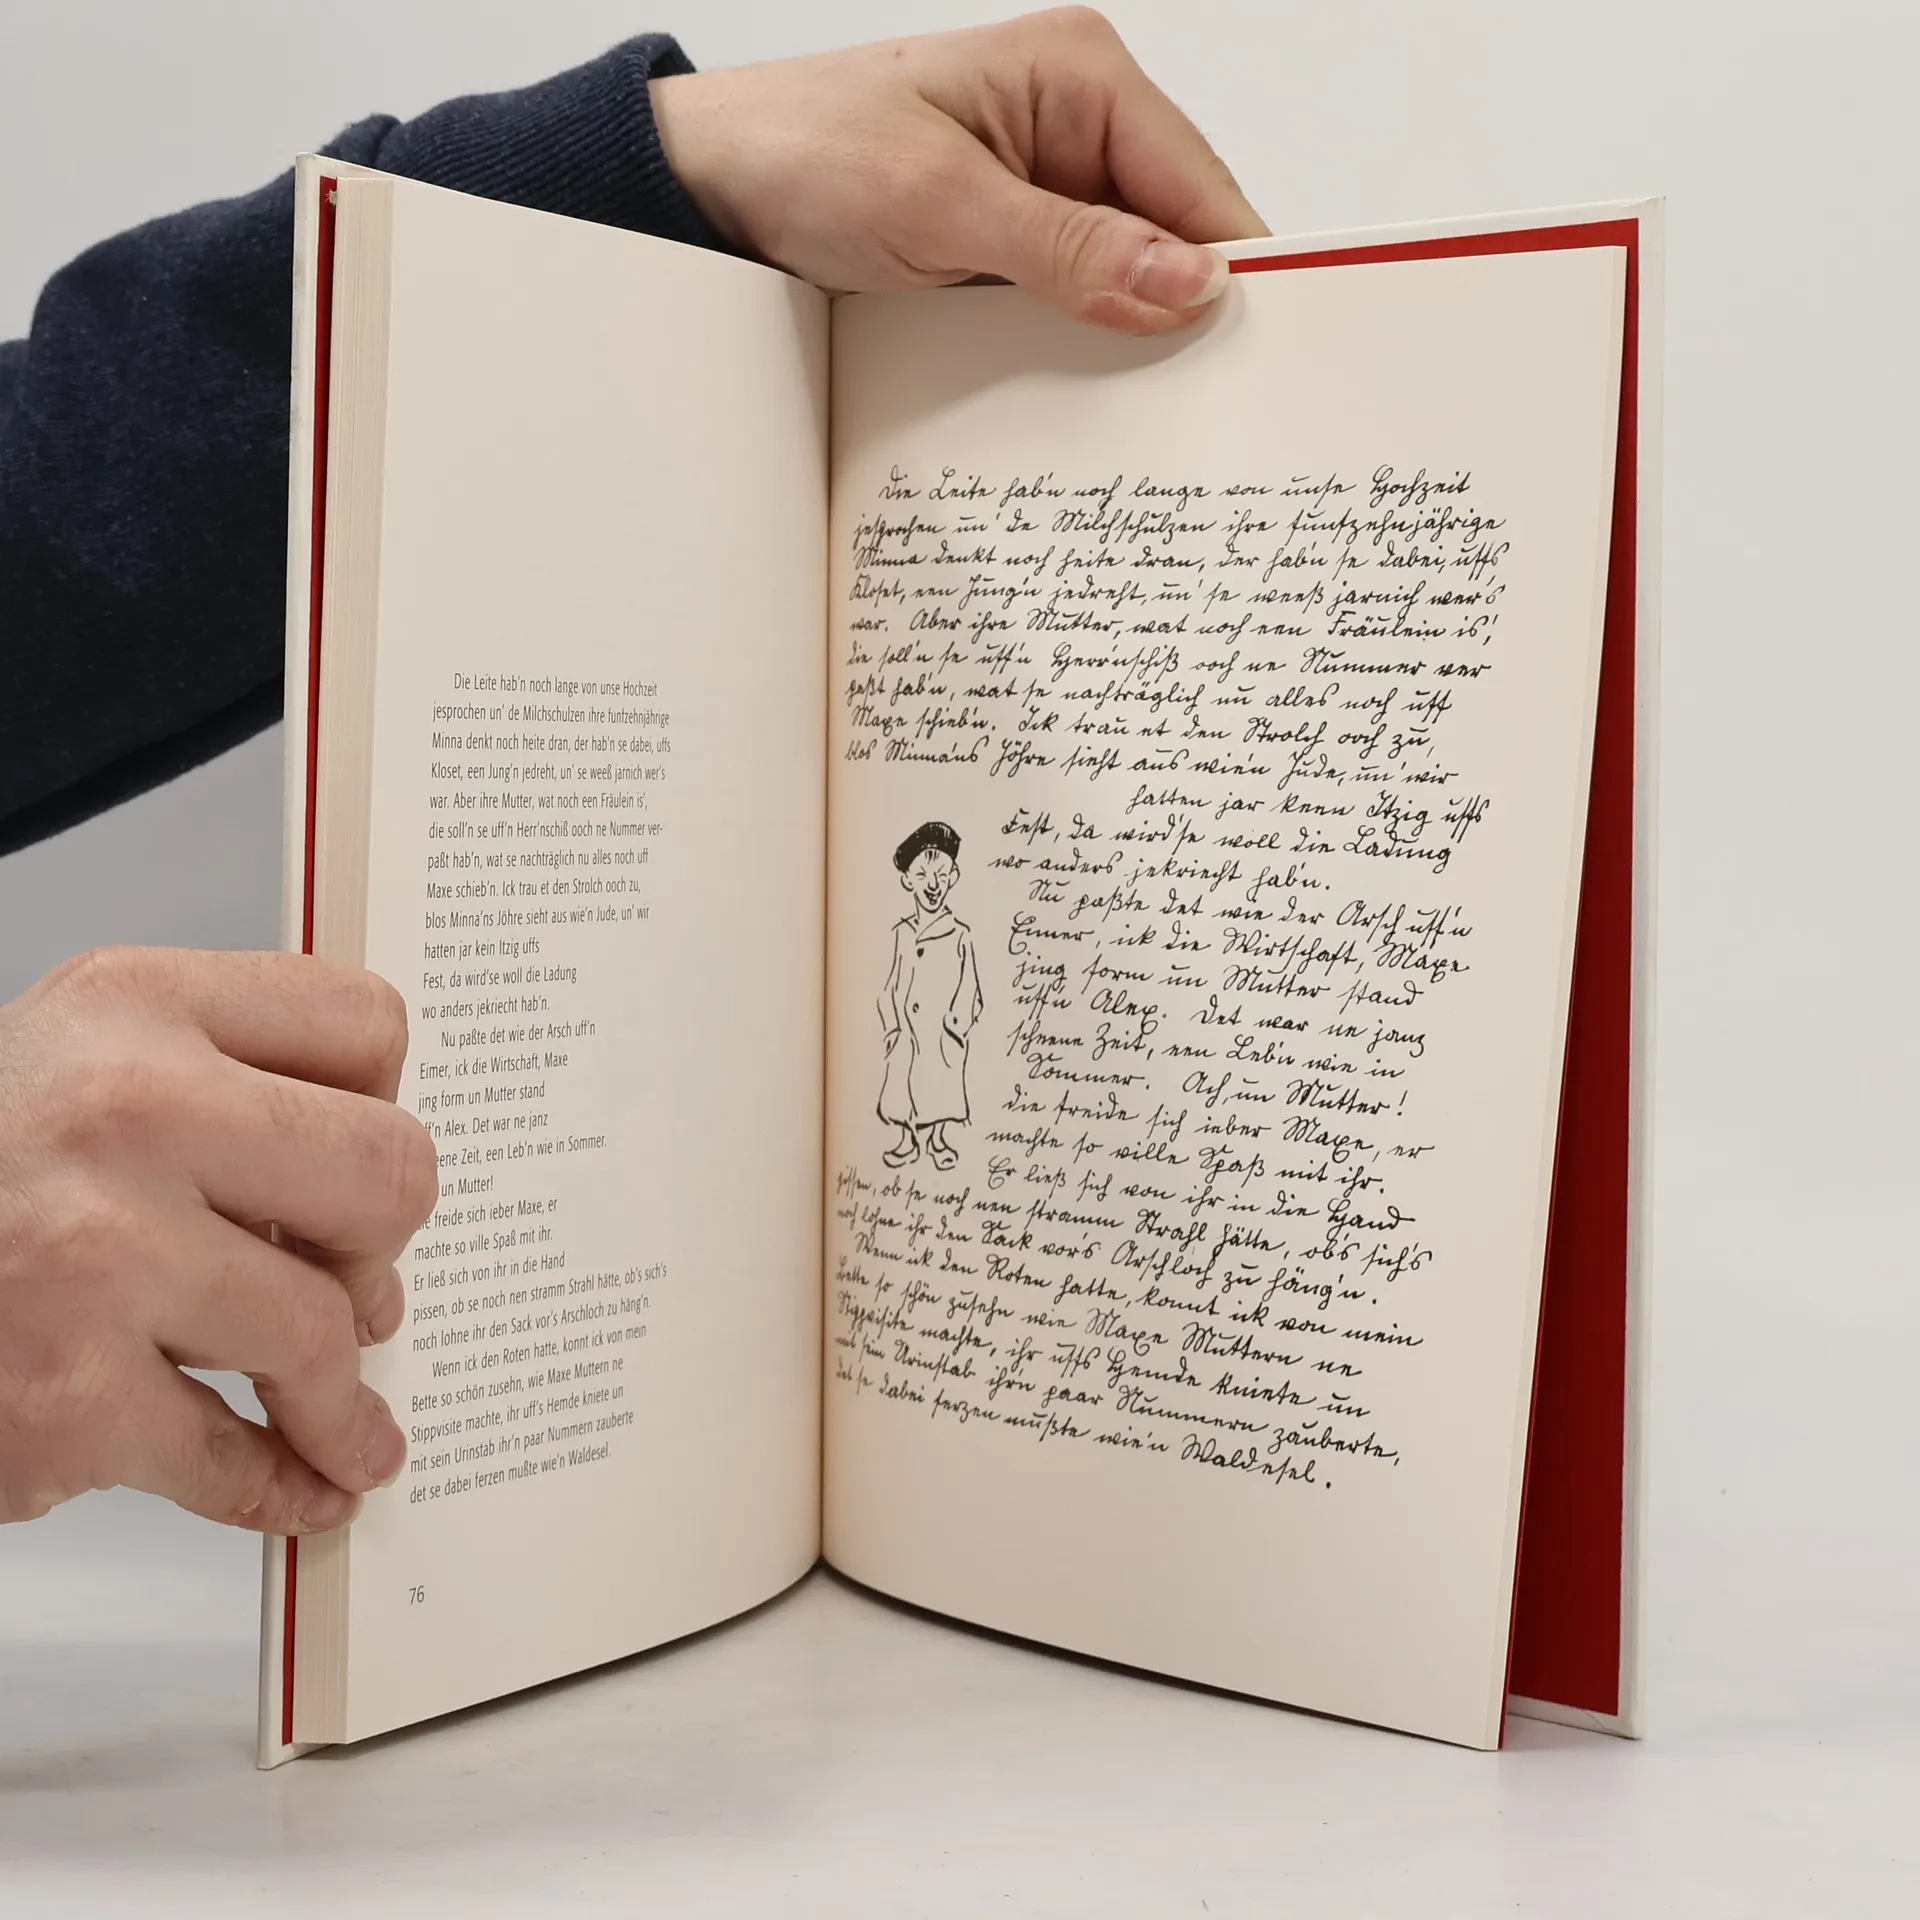 Die Leite hab'n noch lange von unse Hochzeit
jesprochen un' de Milchschulzen ihre funfzehnjährige
Minna denkt noch heite dran, der hab'n se dabei, uffs
Kloset, een Jung'n jedreht, un' se weeß jarnich wer's
war. Aber ihre Mutter, wat noch een Fräulein is',
die soll'n se uff'n Herr'nschiß ooch ne Nummer ver-
paßt hab'n, wat se nachträglich nu alles noch uff
Maxe schieb'n. Ick trau et den Strolch ooch zu,
blos Minna'ns Jöhre sieht aus wie'n Jude, un' wir
hatten jar kein Itzig uffs
Fest, da wird'se woll die Ladung
wo anders jekriecht hab'n.
Nu paßte det wie der Arsch uff'n
Eimer, ick die Wirtschaft, Maxe
jing form un Mutter stand
ff'n Alex. Det war ne janz
eene Zeit, een Leb'n wie in Sommer.
un Mutter!
freide sich ieber Maxe, er
machte so ville Spaß mit ihr.
Er ließ sich von ihr in die Hand
pissen, ob se noch nen stramm Strahl hätte, ob's sich's
noch lohne ihr den Sack vor's Arschloch zu häng'n.
Wenn ick den Roten hatte, konnt ick von mein
Bette so schön zusehn, wie Maxe Muttern ne
Stippvisite machte, ihr uff's Hemde kniete un
mit sein Urinstab ihr'n paar Nummern zauberte
det se dabei ferzen mußte wie'n Waldesel.
76
Die Leite hab'n noch lange von unse Hochzeit
jesprochen un' de Milchschulzen ihre funfzehnjährige
Minna denkt noch heite dran, der hab'n se dabei, uffs
Kloset, een Jung'n jedreht, un' se weeß jarnich wer's
war. Aber ihre Mutter, wat noch een Fräulein is',
die soll'n se uff'n Herr'nschiß ooch ne Nummer ver
paßt hab'n, wat se nachträglich nu alles noch uff
Maxe schieb'n. Ick trau et den Strolch ooch zu,
blos Minna'ns Jöhre sieht aus wie'n Jude, un' wir
hatten jar keen Itzig uffs
Fest, da wird'se woll die Ladung
wo anders jekriecht hab'n.
Nu paßte det wie der Arsch uff'n
Eimer, ick die Wirtschaft, Maxe
jing form un Mutter stand
uff'n Alex. Det war ne janz
scheene Zeit, een Leb'n wie in
Sommer. Ach, un Mutter!
die freide sich ieber Maxe, er
machte so ville Spaß mit ihr.
Er ließ sich von ihr in die Hand
pissen, ob se noch nen stramm Strahl hätte, ob's sich's
noch lohne ihr den Sack vor's Arschloch zu häng'n.
Wenn ick den Roten hatte, konnt ick von mein
Bette so schön zusehn wie Maxe Muttern ne
Stippvisite machte, ihr uffs Hemde kniete un
mit sein Urinstab ihr'n paar Nummern zauberte,
det se dabei ferzen mußte wie'n Waldesel.